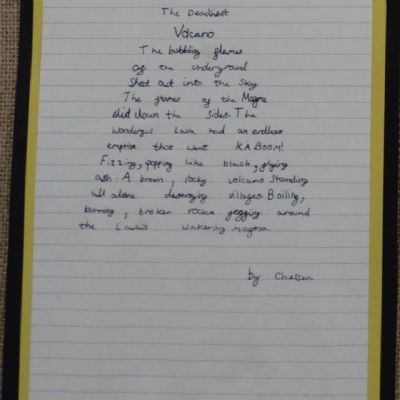 The Deadliest
Volcano
The bubbling flames
of the underground
Shot out into the sky.
The flames of the Magma
slid down the sides. The
wonderful Lava had an endless
eruption that went KABOOM!
Fizzing, popping like black, flying
ash. A brown, rocky volcano standing
all alone destroying villages. Boiling,
burning, broken rocks jogging around
the Lava's magma.
by Chelsea